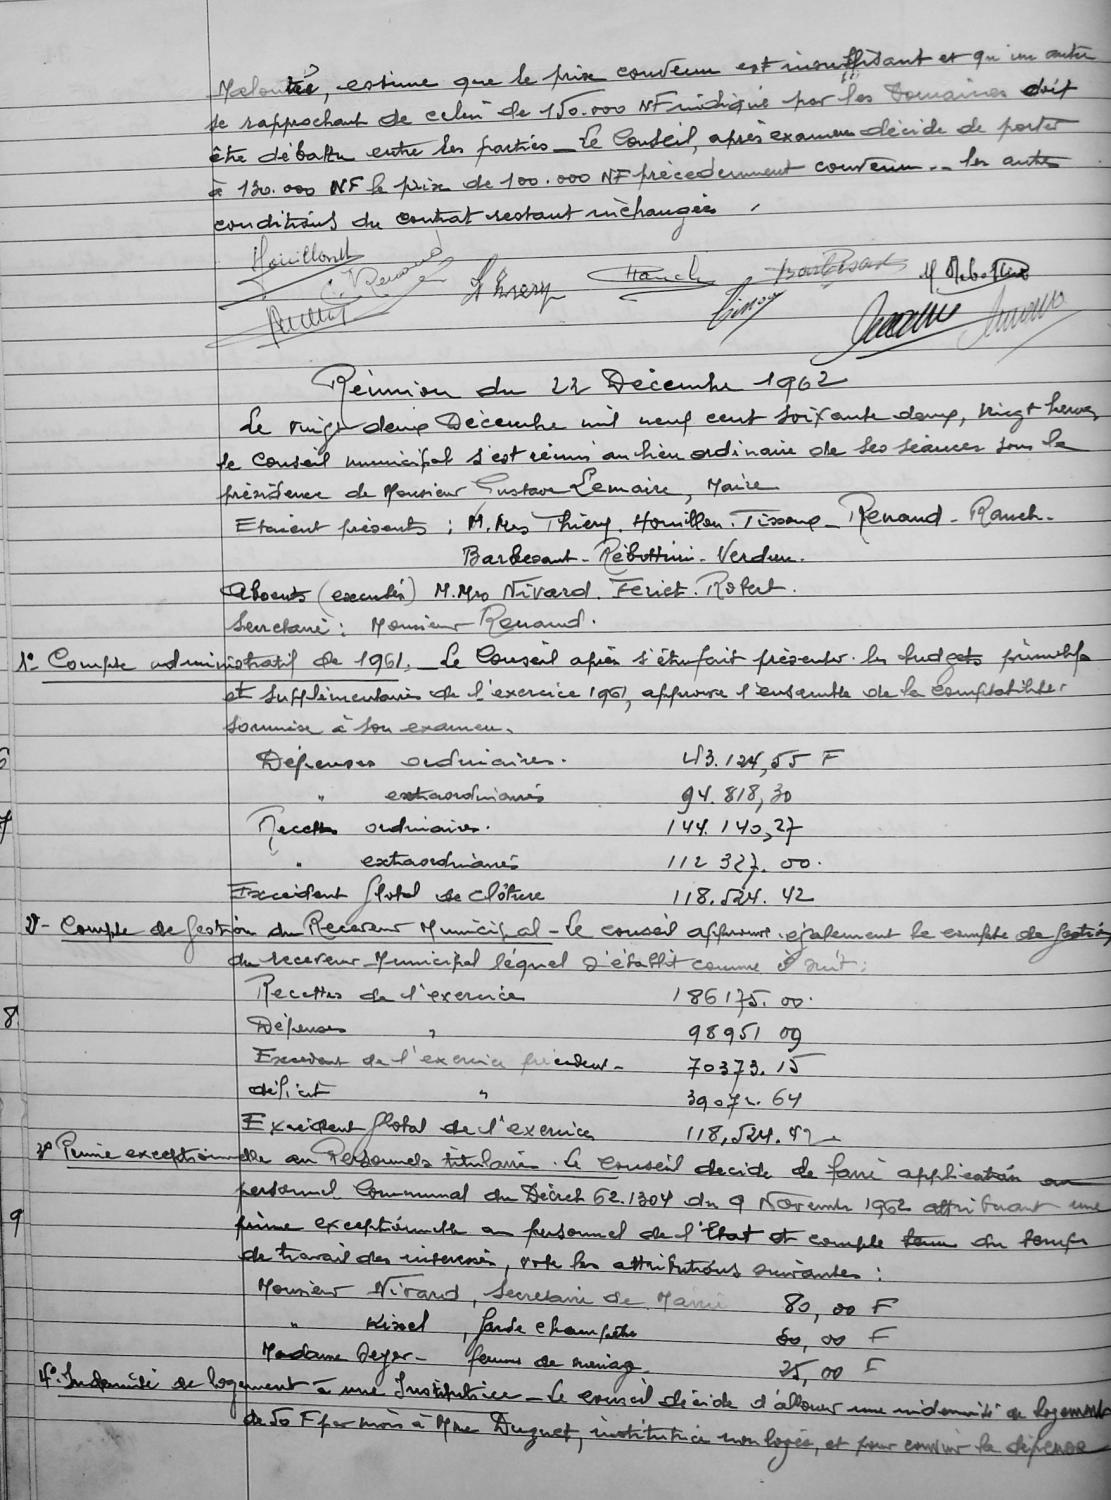 estime que le prix convenu est insuffisant et qu'un autre
se rapprochant de celui de 150.000 NF indiqué par les Domaines doit
être débattu entre les parties _ Le Conseil, après examen décide de porter
à 130.000 NF le prix de 100.000 NF précédemment convenu _ les autres
conditions du contrat restant inchangées
Houillon
Renaud
Thiery
Rauch
Barbesant
M. Rebottini
Tisson
Réunion du 22 Décembre 1962
Le vingt deux Décembre mil neuf cent soixante deux, vingt heures
le Conseil municipal s'est réuni au lieu ordinaire de ses séances sous la
présidence de Monsieur Gustave Lemaire, Maire
Etaient présents : M.Mrs Thiery. Houillon. Renaud - Rauch -
Barbesant - Rebottini - Verdun.
Absents (excusés) M.Mrs Nivard. Feriet. Robert.
Secrétaire : Monsieur Renaud.
1° Compte administratif de 1961. _ Le Conseil après s'être fait présenter les budgets primitifs
et supplémentaires de l'exercice 1961, approuve l'ensemble de la comptabilité
soumise à son examen.
Dépenses ordinaires. 43.124,55 F
" extraordinaires 94.818,30
Recettes ordinaires. 144.140,27
" extraordinaires 112 327.00.
Excédent global de clôture 118.524.42
2° - Compte de Gestion du Receveur Municipal - Le conseil approuve également le compte de gestion
du receveur Municipal lequel s'établit comme suit :
Recettes de l'exercice 186175.00.
Dépenses " 98951 09
Excédent de l'exercice précédent - 70373.15
déficit " 39072.64
Excédent global de l'exercice 118,524.42
3° Prime exceptionnelle au Personnel titulaire. Le conseil décide de faire application au
personnel Communal du Décret 62.1304 du 9 Novembre 1962 attribuant une
prime exceptionnelle au personnel de l'Etat et compte tenu du temps
de travail des intéressés, vote les attributions suivantes :
Monsieur Nivard, Secrétaire de Mairie 80,00 F
" Kissel, garde champêtre 60,00 F
Madame femme de ménage 25,00 F
4° - Indemnité de logement à une Institutrice _ Le conseil décide d'allouer une indemnité de logement
de 50 F par mois à Mme Duguet, institutrice non logée, et pour couvrir la dépense
6
7
8
9